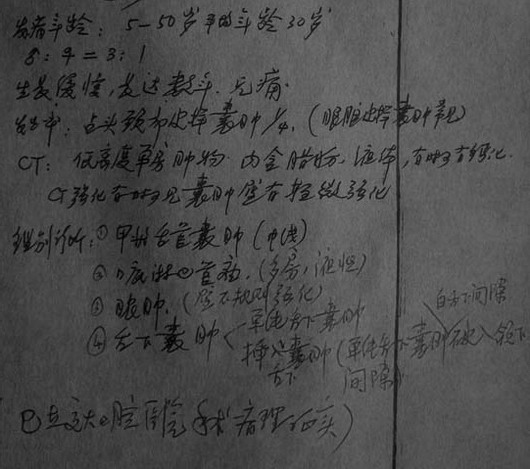 患者年龄: 5-50岁 平均年龄30岁
♂:♀=3:1
生长缓慢,长达数年.无痛.
发生率: 占头颈部皮样囊肿1/4, (眼眶皮样囊肿常见)
CT: 低密度单房肿物. 内含脂肪.液体,有时有钙化.
CT强化有时可见囊肿壁有轻微强化
鉴别诊断:①甲状舌管囊肿(中线)
②淋巴管瘤.(多房,液性)
③脓肿.(壁不规则强化)
④舌下囊肿 单纯舌下囊肿
自舌下间隙
舌下 (单纯舌下囊肿破入颌下
间隙)
已在交大口腔医院手术病理证实)